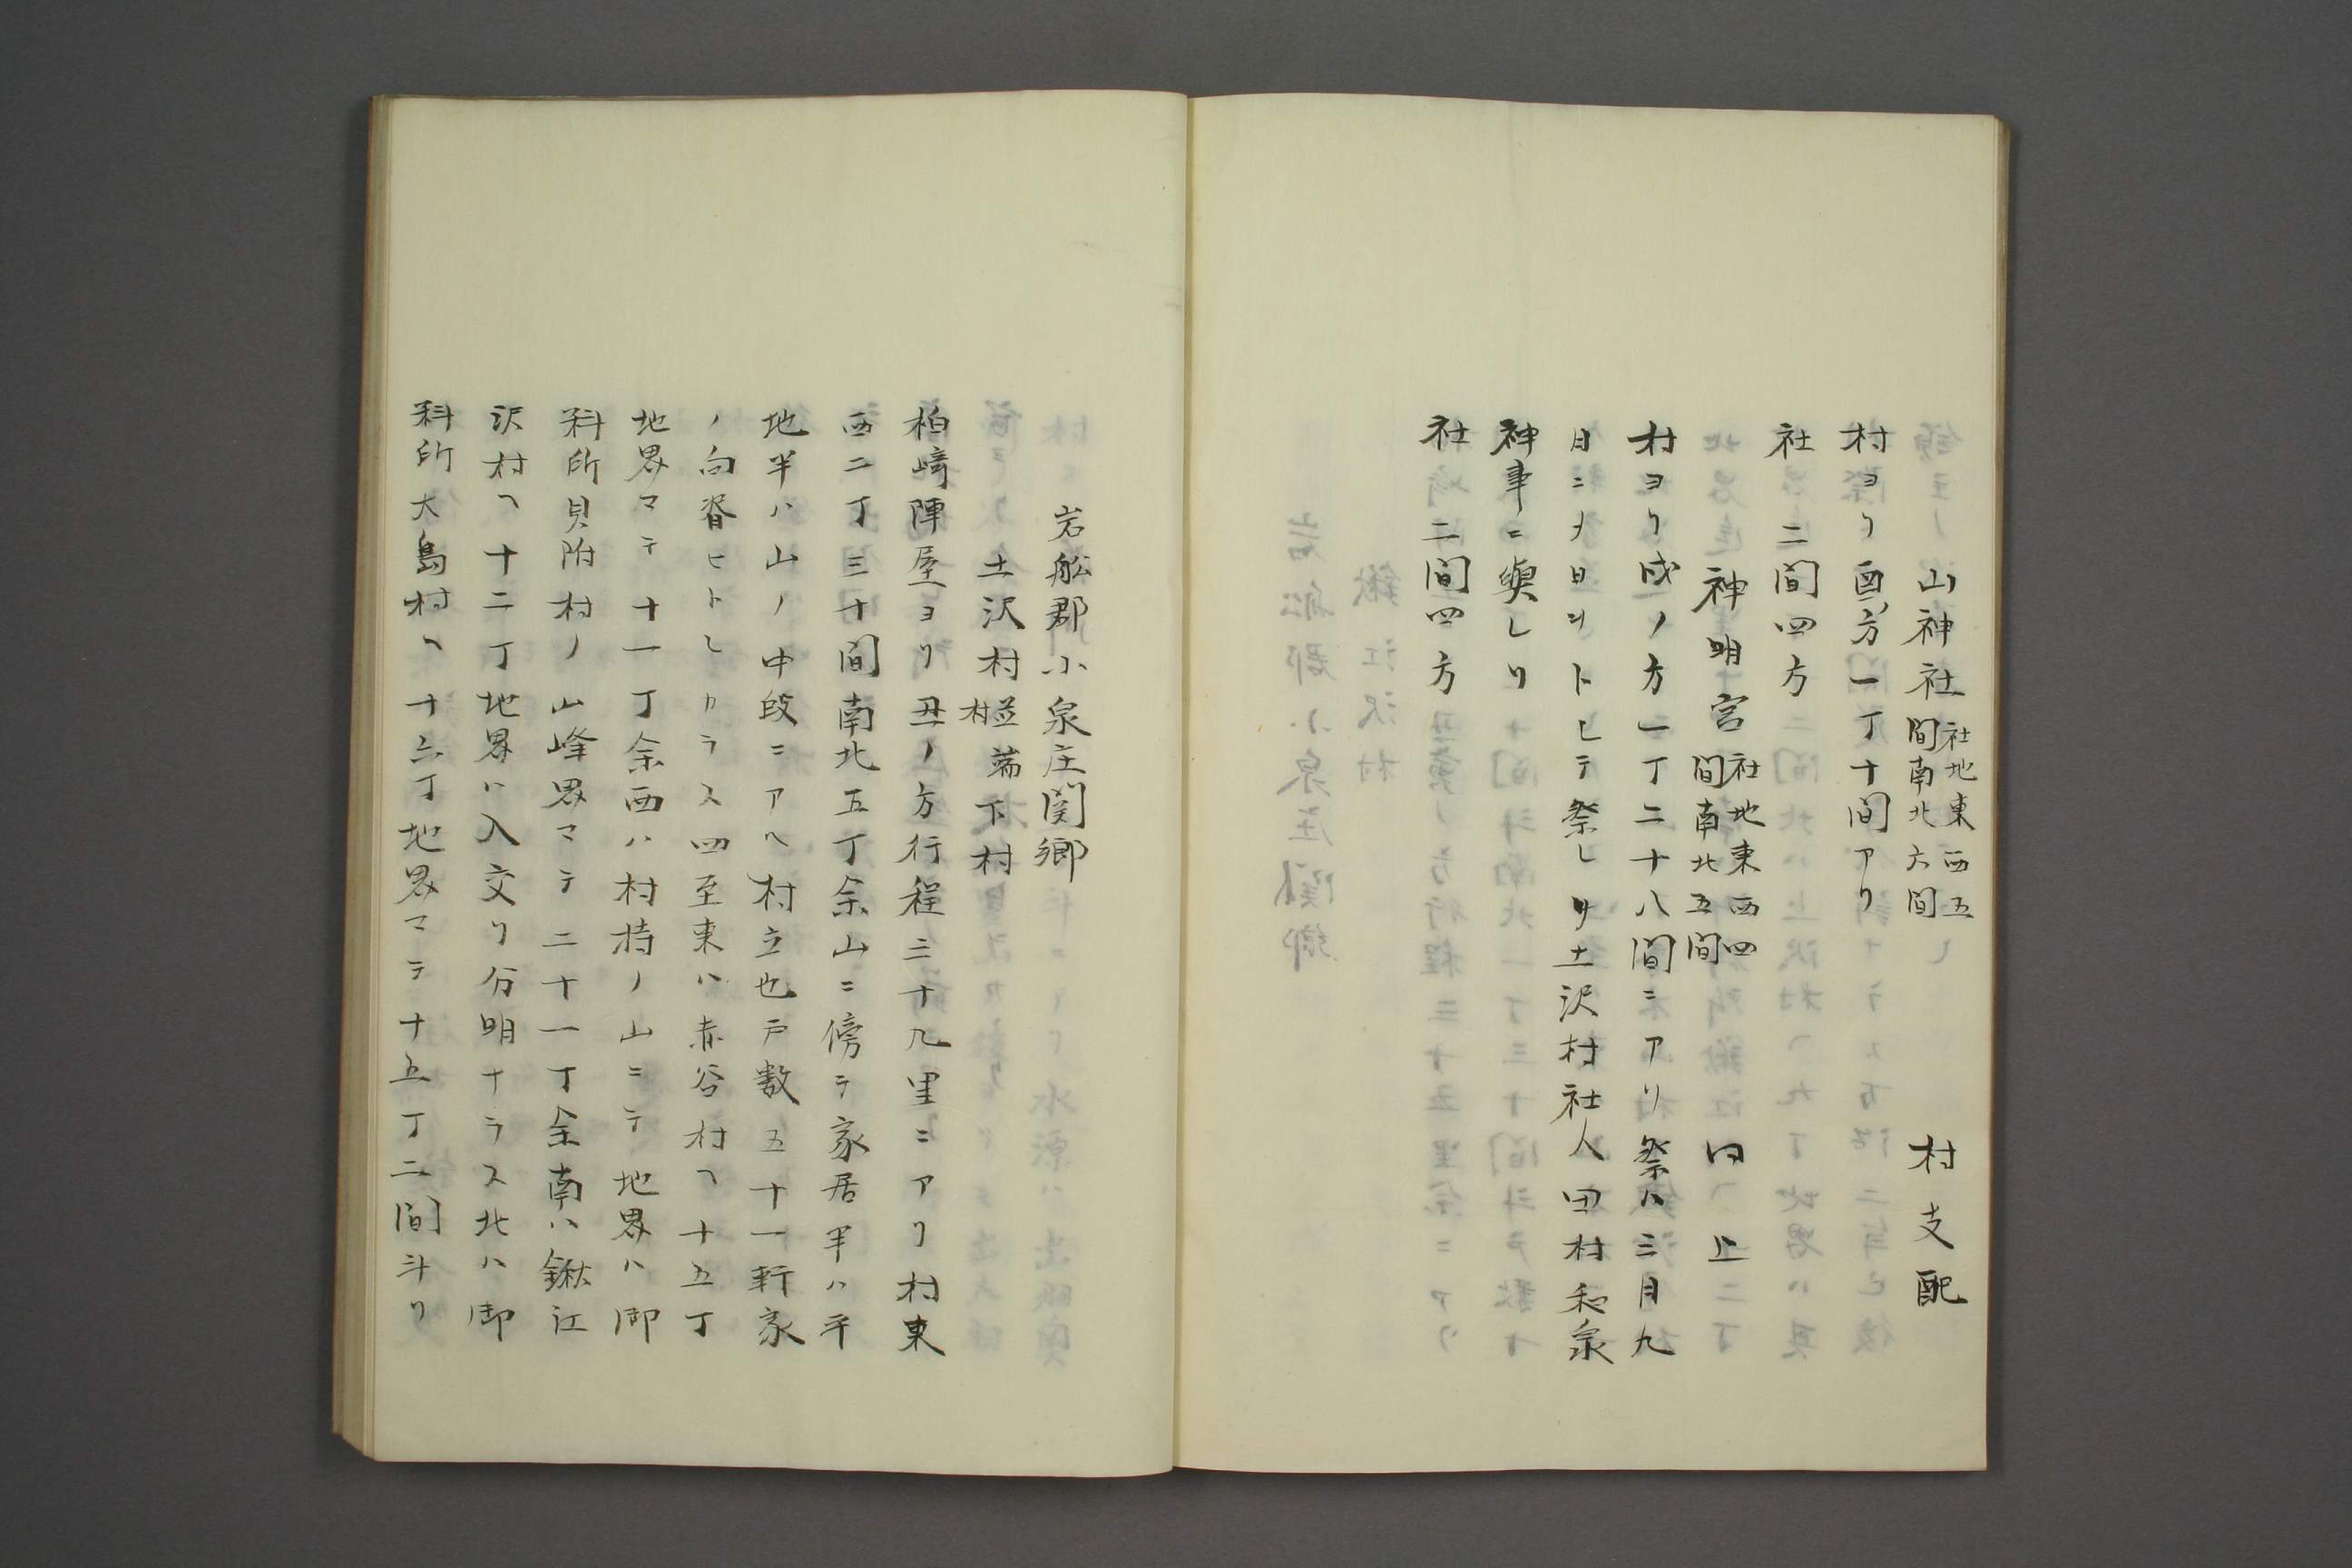 山神社 社地東西五間南北六間 村支配
村ヨリ酉ノ方一丁十間アリ
社 二間四方
神明宮 社地東西四間南北五間 同上
村ヨリ戌ノ方一丁二十八間ニアリ祭ハ三月九
日ニヲ日ントヒテ祭レリ土沢村社人田村和泉
神事ニ與レリ
社 二間四方
岩舩郡小泉庄関郷
土沢村 村並 端村 下村
柏﨑陣屋ヨリ丑ノ方行程三十九里ニアリ村東
西二丁三十間南北五丁余山ニ傍テ家居半ハ平
地半ハ山ノ中段ニアヘ村立也戸数五十一軒家
ノ向背ヒトシカラス四至東ハ赤谷村ヘ十五丁
地界マテ十一丁余西ハ村持ノ山ニテ地界ハ御
料所貝附村ノ山峰界マテ二十一丁余南ハ鍬江
沢村ヘ十二丁地界ハ入交リ分明ナラス北ハ御
料所大島村ヘ十六丁地界マテ十五丁二間斗リ